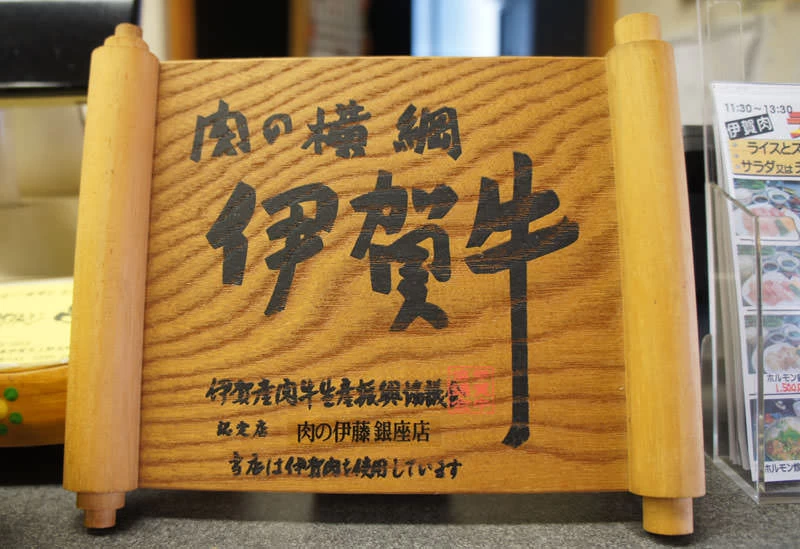 肉の横綱
伊賀牛
伊賀産肉牛生産振興協議会
認定店 肉の伊藤 銀座店
当店は伊賀肉を使用しています
11:30～13:30
伊賀肉
ライスとス
サラダ又は
ホルモン
1,500
ホルモン